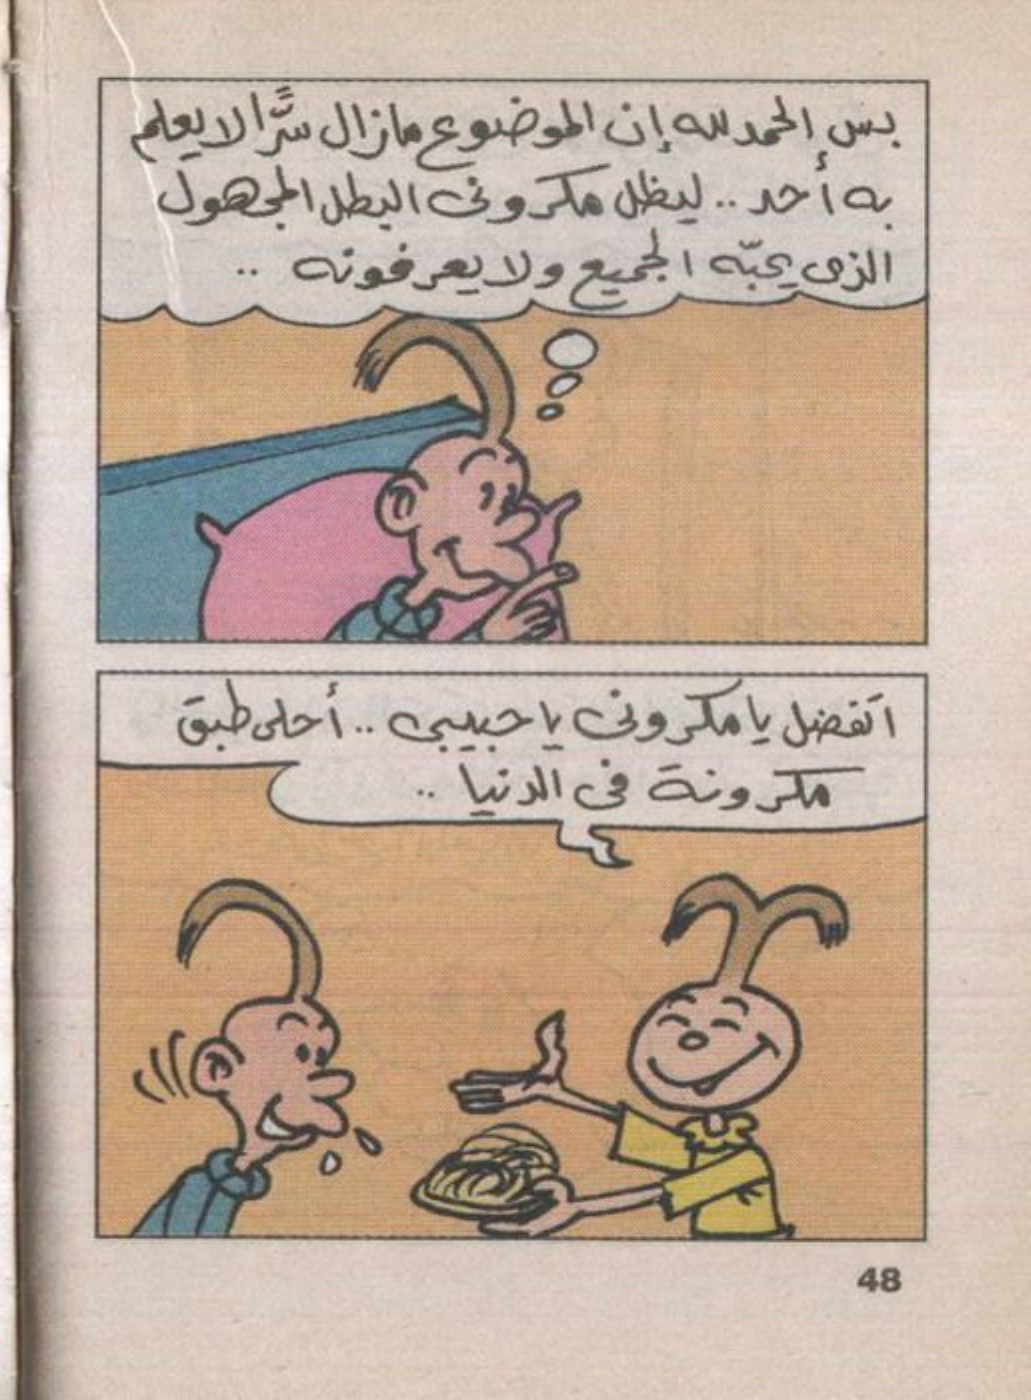 بس الحمد لله إن الموضوع مازال سرًّا لا يعلم
به أحد .. ليظل مكرونى البطل المجهول
الذى يحبّه الجميع ولا يعرفونه ..
اتفضل يا مكرونى يا حبيبى .. أحلى طبق
مكرونة فى الدنيا ..
48